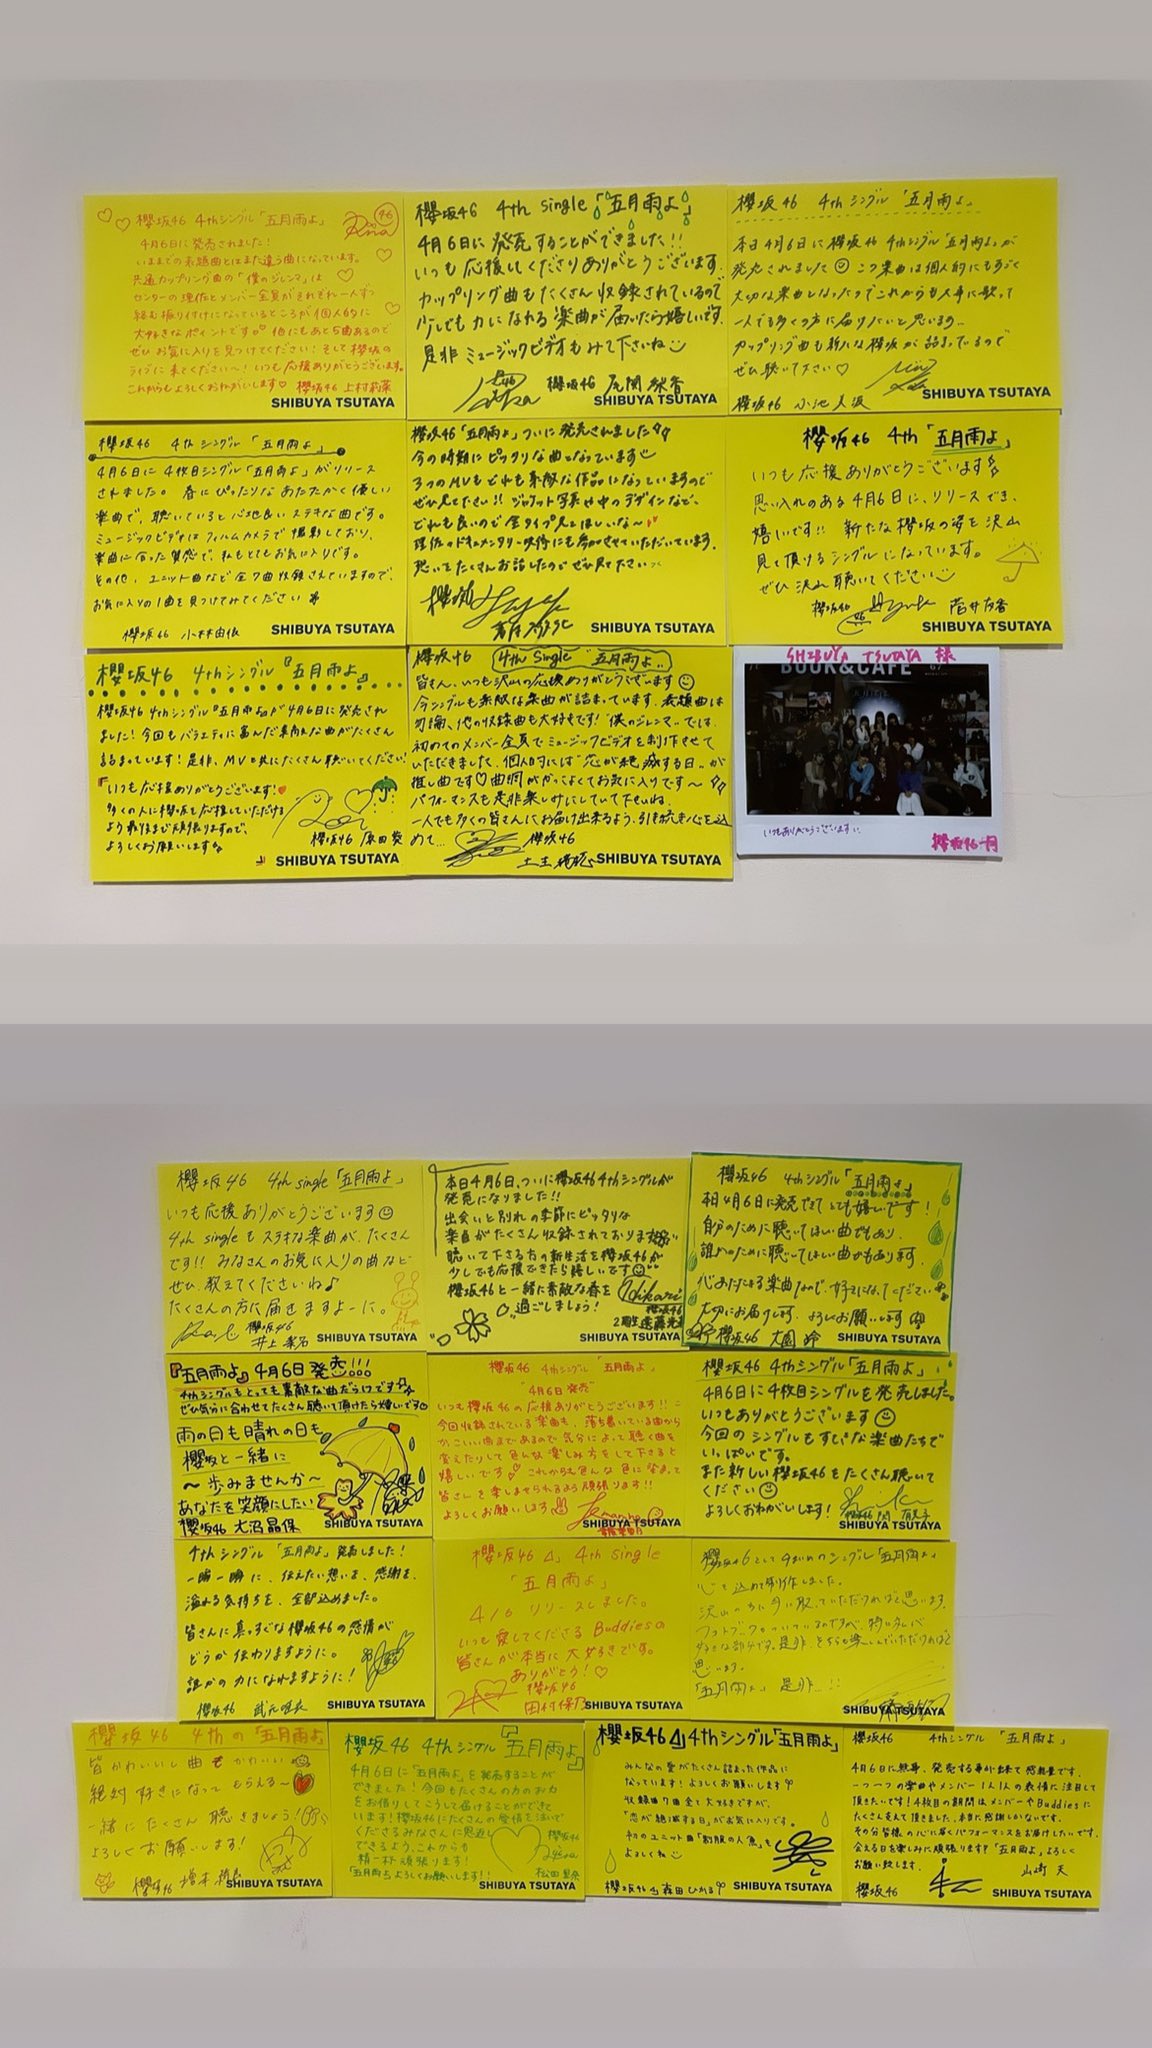 櫻坂46 4thシングル「五月雨よ」
4月6日に発売されました!
いままでの表題曲とはまた違う曲になっています。
共通カップリング曲の「僕のジレンマ」は
センターの理佐とメンバー全員がそれぞれ一人ずつ
絡む振り付けになっているところが個人的に
大好きなポイントです。他にもあと5曲あるので
ぜひお気に入りを見つけてください!そして櫻坂の
ライブに来てくださ〜い!いつも応援ありがとうございます。
これからもよろしくおねがいします♡ 櫻坂46 上村莉菜
SHIBUYA TSUTAYA
櫻坂46 4th single「五月雨よ」
4月6日に発売することができました!!
いつも応援してくださりありがとうございます。
カップリング曲もたくさん収録されているので
少しでも力になれる楽曲が届いたら嬉しいです。
是非ミュージックビデオもみて下さいね
櫻坂46 尾関梨香
SHIBUYA TSUTAYA
櫻坂46 4thシングル「五月雨よ」
本日4月6日に櫻坂46 4thシングル「五月雨よ」が
発売されました この楽曲は個人的にもすごく
大切な楽曲となったのでこれからも大事に歌って
一人でも多くの方に届けたいと思います。
カップリング曲も新たな櫻坂が詰まっているので
ぜひ聴いて下さい♡
櫻坂46 小池美波
SHIBUYA TSUTAYA
櫻坂46 4thシングル「五月雨よ」
4月6日に4枚目シングル「五月雨よ」がリリース
されました。春にぴったりなあたたかく優しい
楽曲で、聴いていると心地良いステキな曲です。
ミュージックビデオはフィルムカメラで撮影しており、
楽曲に合った質感で、私もとてもお気に入りです。
その他、ユニット曲など全7曲収録されていますので、
お気に入りの1曲を見つけてみてください
櫻坂46 小林由依
SHIBUYA TSUTAYA
櫻坂46「五月雨よ」ついに発売されました
今の時期にピッタリな曲となっています
3つのMVもどれも素敵な作品になっていますので
ぜひ見てほしい!!ジャケット写真や中のデザインなど、
どれも良いので全タイプ見てほしいな〜
理佐のドキュメンタリー映像にも参加させていただいています。
思いをたくさんお話したのでぜひ見て下さい
SHIBUYA TSUTAYA
櫻坂46 4th「五月雨よ」
いつも応援ありがとうございます
思い入れのある4月6日に、リリースでき、
嬉しいです!!新たな櫻坂の姿を沢山
見て頂けるシングルになっています。
ぜひ沢山聴いてください
櫻坂46 菅井友香
SHIBUYA TSUTAYA
櫻坂46 4thシングル『五月雨よ』
櫻坂46 4thシングル『五月雨よ』が4月6日に発売され
ました!今回もバラエティに富んだ素敵な曲がたくさん
詰まっています!是非、MVと共にたくさん聴いてください!
いつも応援ありがとうございます!
多くの人に櫻坂を応援していただける
よう最後まで頑張りますので、
よろしくお願いします
櫻坂46 原田葵
SHIBUYA TSUTAYA
櫻坂46 4th Single "五月雨よ"
皆さん、いつも沢山の応援ありがとうございます
今シングルも素敵な楽曲が詰まっています。表題曲は
勿論、他の収録曲も大好きです!"僕のジレンマ"では、
初めてのメンバー全員でミュージックビデオを制作させて
いただきました。個人的には"恋が絶滅する日"が
推し曲です♡曲調がかっこよくてお気に入りです〜
パフォーマンスも是非楽しみにしていて下さいね。
一人でも多くの皆さんにお届け出来るよう、引き続き心を込
めて…
櫻坂46
土生瑞穂
SHIBUYA TSUTAYA
SHIBUYA TSUTAYA 様
BOOK&CAFE
いつもありがとうございます
櫻坂46一同
櫻坂46 4th single「五月雨よ」
いつも応援ありがとうございます
4th singleもステキな楽曲が、たくさん
です!!みなさんのお気に入りの曲など
ぜひ、教えてくださいね♪
たくさんの方に届きますよーに。
櫻坂46
井上梨名
SHIBUYA TSUTAYA
本日4月6日、ついに櫻坂46 4thシングルが
発売になりました!!
出会いと別れの季節にピッタリな
楽曲がたくさん収録されております
聴いて下さる方の新生活を櫻坂46が
少しでも応援できたら嬉しいです
櫻坂46と一緒に素敵な春を
過ごしましょう!
Hikari
櫻坂46
2期生 遠藤光莉
SHIBUYA TSUTAYA
櫻坂46 4thシングル「五月雨よ」
本日4月6日に発売できてとても嬉しいです!
自分のために聴いてほしい曲でもあり
誰かのために聴いてほしい曲でもあります。
大切にお届けします。よろしくお願いします
櫻坂46 大園玲
SHIBUYA TSUTAYA
『五月雨よ』4月6日発売!!!
4thシングルもとっても素敵な曲だらけです
ぜひ気分に合わせてたくさん聴いて頂けたら嬉しいです
雨の日も晴れの日も
櫻坂と一緒に
〜歩みませんか〜
あなたを笑顔にしたい
櫻坂46 大沼晶保
SHIBUYA TSUTAYA
櫻坂46 4thシングル「五月雨よ」
"4月6日発売"
いつも櫻坂46の応援ありがとうございます!!
今回収録されている楽曲も、落ち着いている曲から
かっこいい曲まであるので気分によって聴く曲を
変えたりして色んな楽しみ方をして下さると
嬉しいです これからも色んな色に染まって
皆さんを楽しませられるよう頑張ります!!
よろしくお願いします
SHIBUYA TSUTAYA
櫻坂46 4thシングル「五月雨よ」
4月6日に4枚目シングルを発売しました。
いつもありがとうございます
今回のシングルもすてきな楽曲たちで
いっぱいです。
また新しい櫻坂46をたくさん聴いて
ください
よろしくおねがいします!
SHIBUYA TSUTAYA
4thシングル「五月雨よ」発売しました!
一瞬一瞬に、伝えたい想いを、感謝を、
溢れる気持ちを、全部込めました。
皆さんに真っすぐな櫻坂46の感情が
どうか伝わりますように。
誰かの力になれますように!
櫻坂46 武元唯衣
SHIBUYA TSUTAYA
櫻坂46 4th single
「五月雨よ」
4/6 リリースしました。
いつも愛してくださるBuddiesの
皆さんが本当に大好きです。
ありがとう!♡
櫻坂46
田村保乃
SHIBUYA TSUTAYA
心を込めて制作しました。
沢山の方に手に取っていただければと思います。
思います。
「五月雨よ」是非…!!
SHIBUYA TSUTAYA
櫻坂46 4thの「五月雨よ」
皆かわいいし曲もかわいい
絶対好きになってもらえる〜
一緒にたくさん聴きましょう!
よろしくお願いします!
櫻坂46 増本綺良
SHIBUYA TSUTAYA
櫻坂46 4thシングル『五月雨よ』
4月6日に「五月雨よ」を発売することが
できました!今回もたくさんの方のお力
をお借りしてこうして届けることができて
います!櫻坂46にたくさんの愛情を注いで
くださるみなさんに恩返し
できるよう、これからも
精一杯頑張ります!
「五月雨よ」よろしくお願いします!!
櫻坂46
松田里奈
SHIBUYA TSUTAYA
櫻坂46 4thシングル「五月雨よ」
みんなの愛がたくさん詰まった作品に
なっています!よろしくお願いします
収録曲7曲全て大好きですが、
「恋が絶滅する日」がお気に入りです。
初のユニット曲「制服の人魚」も
よろしくね
櫻坂46 森田ひかる
SHIBUYA TSUTAYA
櫻坂46 4thシングル「五月雨よ」
4月6日に無事、発売する事が出来て感無量です。
一つ一つの楽曲やメンバー1人1人の表情に注目して
頂きたいです!4枚目の期間はメンバーやBuddiesに
たくさん支えて頂きました。本当に感謝しかないです。
その分皆様の心に届くパフォーマンスをお届けしたいです。
会える日を楽しみに頑張ります!「五月雨よ」よろしく
お願い致します。
山﨑天
櫻坂46
SHIBUYA TSUTAYA